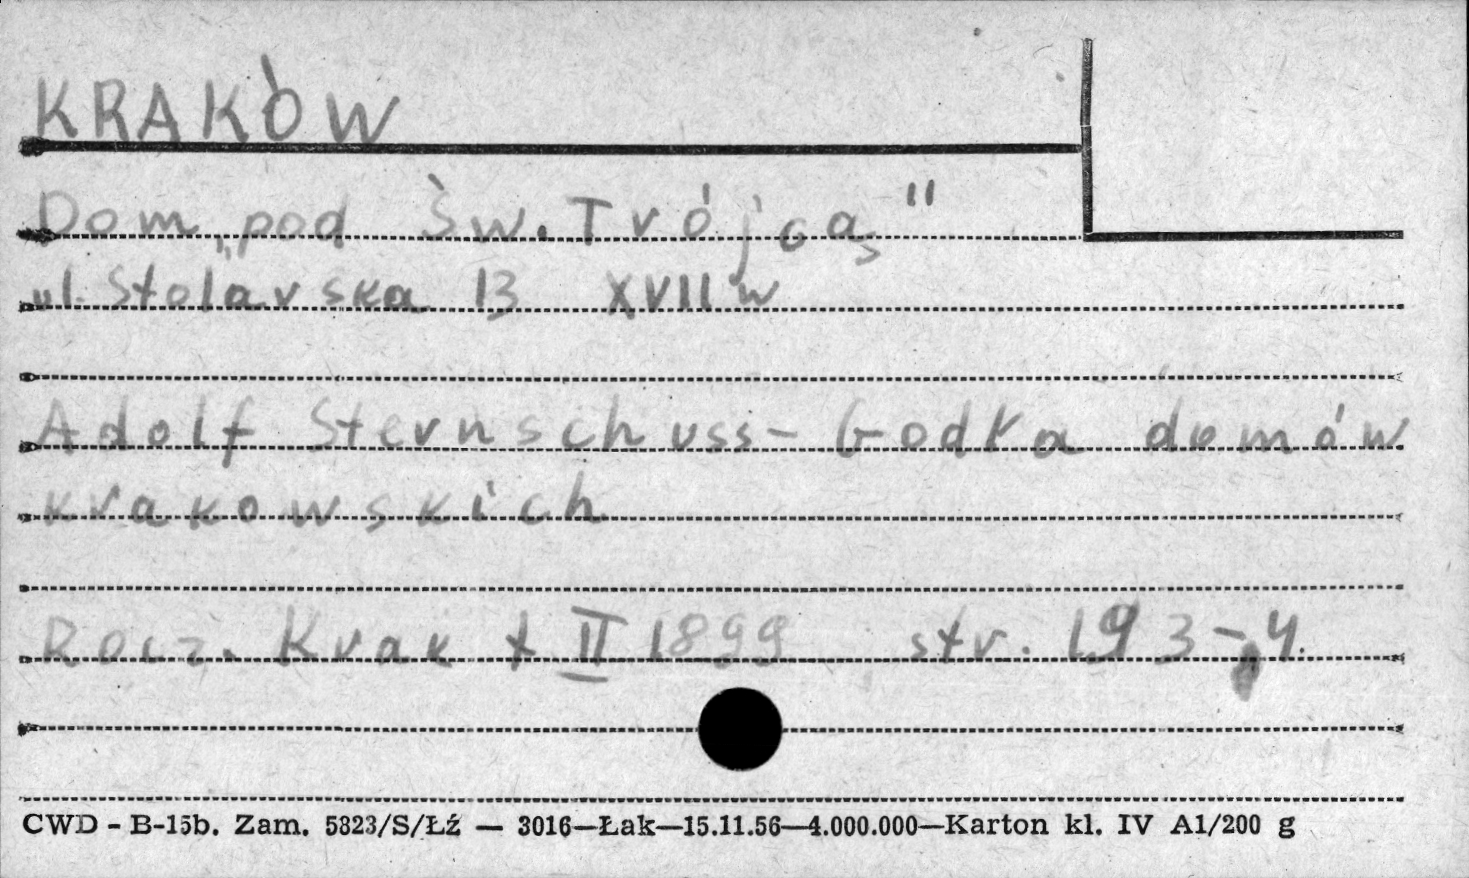 KRAKÓW
Dom „pod Św. Trójcą"
ul. Stolarska 13 XVII w
Adolf Sternschuss - Godła domów
krakowskich
Rocz. Krak t II 1899 str. 193-4.
CWD - B-15b. Zam. 5823/S/Łź — 3016—Łak—15.11.56—4.000.000—Karton kl. IV A1/200 g